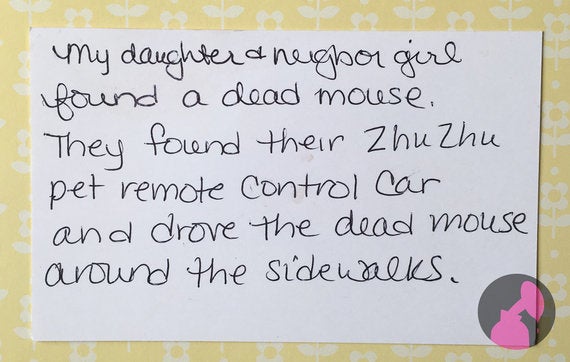 My daughter & neigbor girl
found a dead mouse.
They found their Zhu Zhu
pet remote control car
and drove the dead mouse
around the sidewalks.